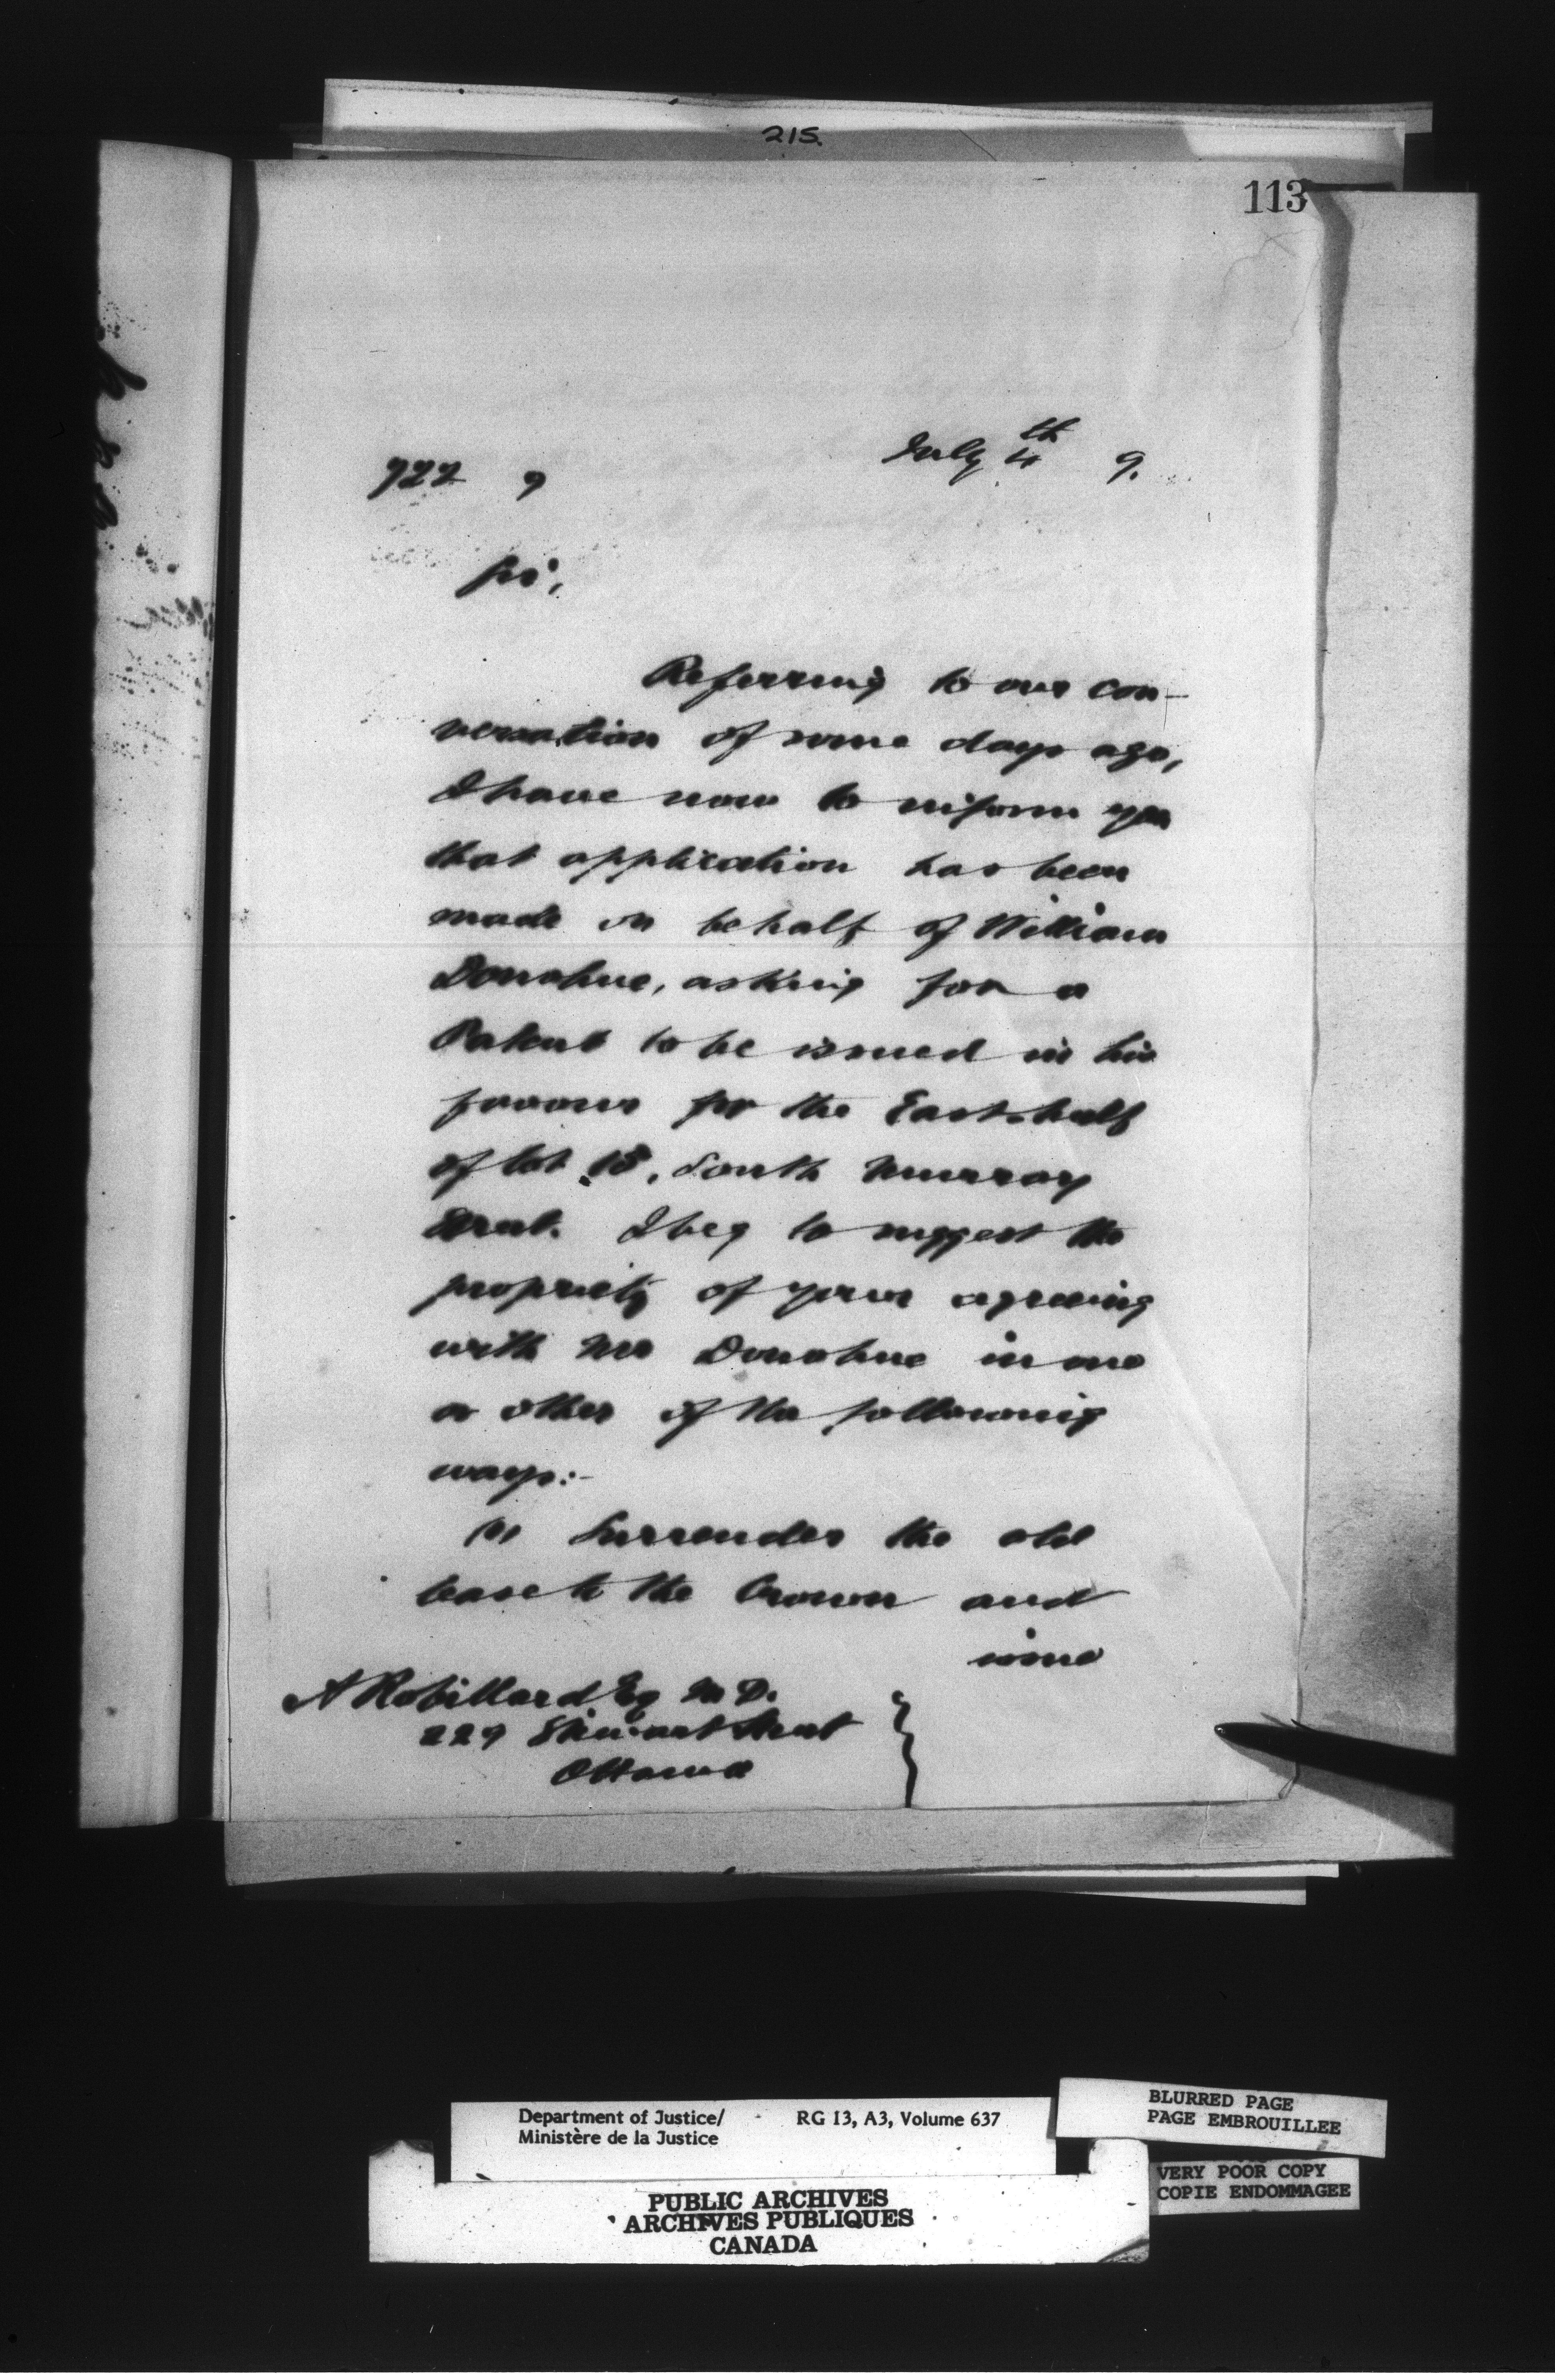 215.
113
722 9
July 4th 9.
Sir,
Referring to our con-
versation of some days ago,
I have now to inform you
that application has been
made on behalf of William
Donahue, asking for a
Patent to be issued in his
favour for the East half
of lot 18, South Murray
Street. I beg to suggest the
propriety of your agreeing
with Mr Donahue in one
or other of the following
ways:-
(1) Surrender the old
lease to the Crown and
A Robillard Esq M.D.
229 Stewart Street
Ottawa
Department of Justice/ RG 13, A3, Volume 637
Ministère de la Justice
BLURRED PAGE
PAGE EMBROUILLEE
VERY POOR COPY
COPIE ENDOMMAGEE
PUBLIC ARCHIVES
ARCHIVES PUBLIQUES
CANADA